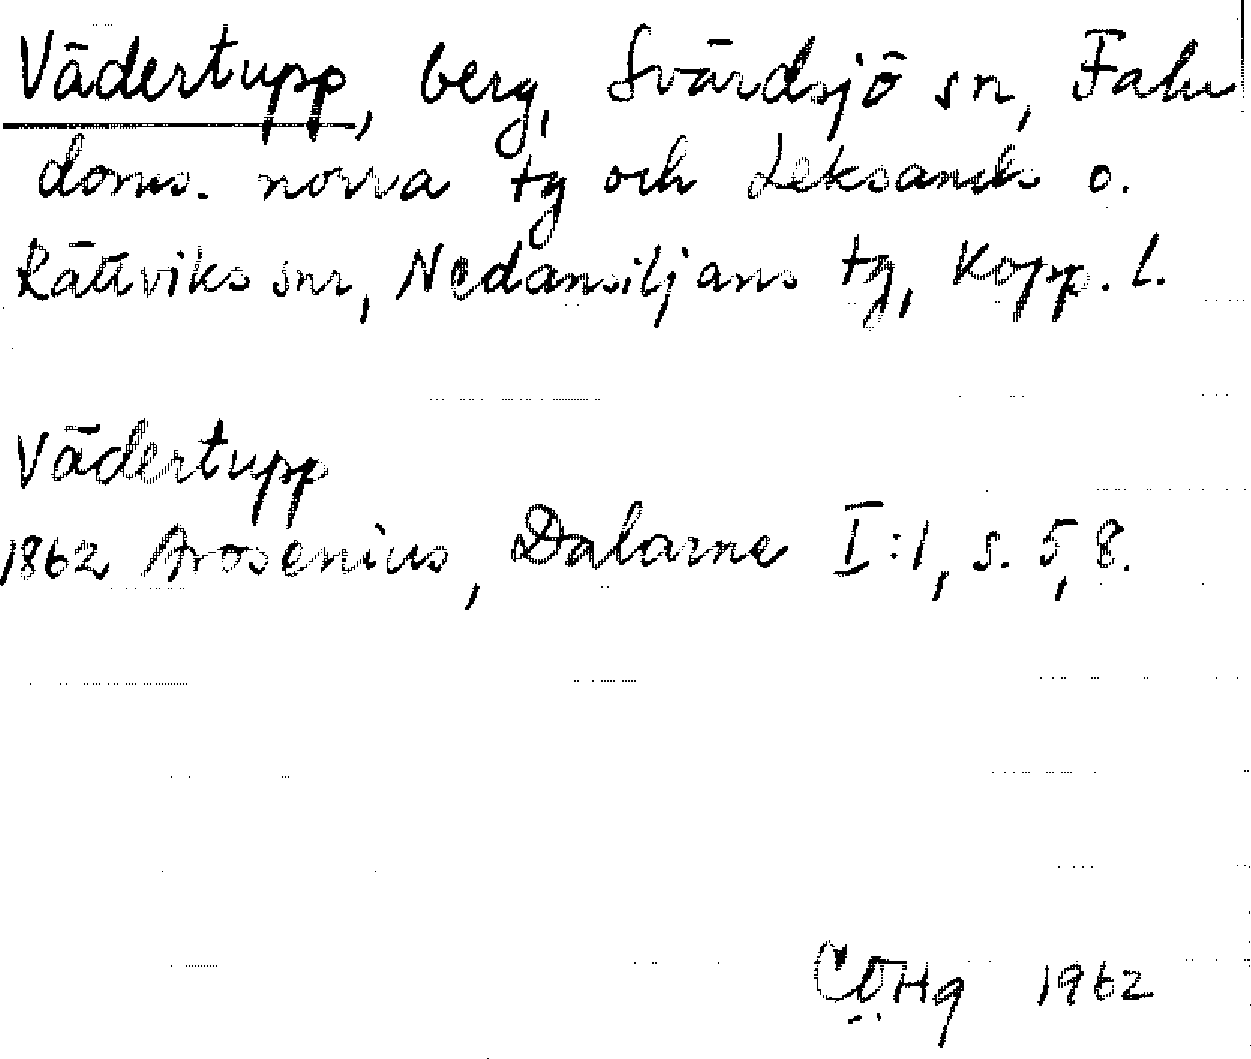 Vädertupp, berg, Svärdsjö sn, Falu
doms. norra tg och Leksands o.
Rättviks snr, Nedansiljans tg, Kopp. l.
Vädertupp
1862 Arosenius, Dalarne I:1, s. 5, 8.
CÖHg 1962